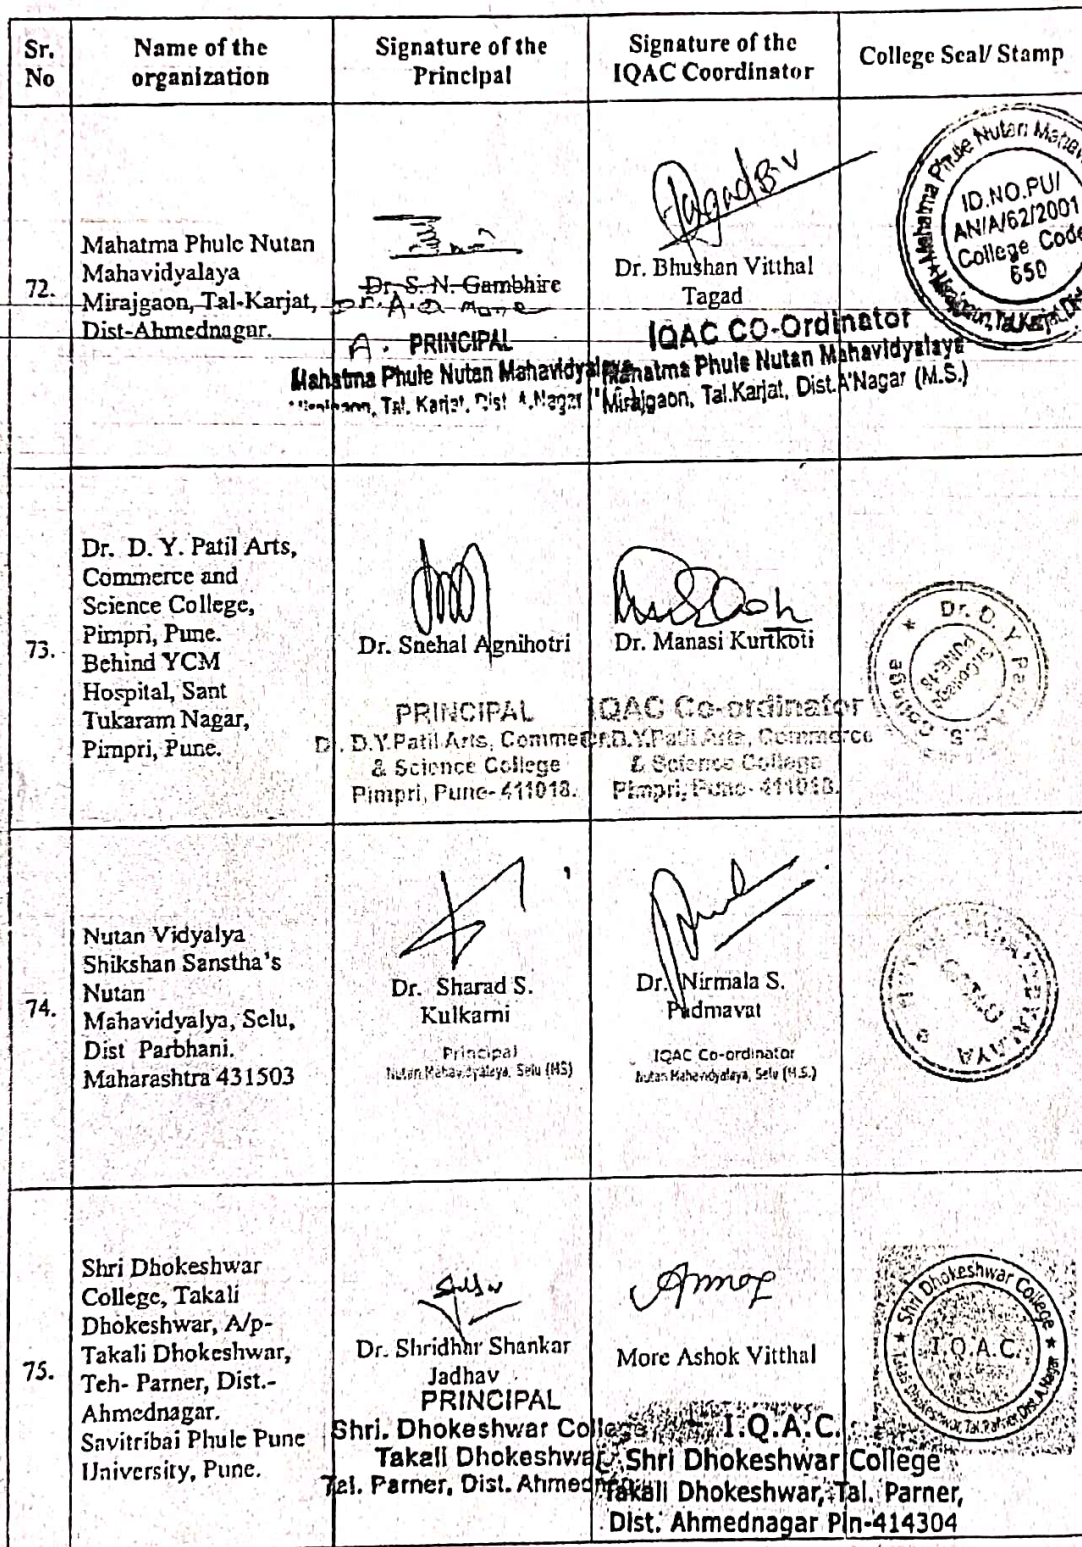 Sr.
No
Name of the
organization
Signature of the
Principal
Signature of the
IQAC Coordinator
College Seal/ Stamp
72.
Mahatma Phule Nutan
Mahavidyalaya
Mirajgaon, Tal-Karjat,
Dist-Ahmednagar.
Dr. S. N. Gambhire
Dr. A. D. Mane
A. PRINCIPAL
Mahatma Phule Nutan Mahavidyalaya
Tal. Karjat, Dist A.Nagar
Tagad B.V
Dr. Bhushan Vitthal
Tagad
IQAC CO-Ordinator
Mahatma Phule Nutan Mahavidyalaya
Mirajgaon, Tal.Karjat, Dist.A'Nagar (M.S.)
Mahatma Phule Nutan
ID.NO.PU/
AN/A/62/2001
College Code
650
Mirajgaon, Tal.Karjat,
73.
Dr. D. Y. Patil Arts,
Commerce and
Science College,
Pimpri, Pune.
Behind YCM
Hospital, Sant
Tukaram Nagar,
Pimpri, Pune.
Dr. Snehal Agnihotri
PRINCIPAL
Dr. D.Y.Patil Arts, Commerce
& Science College
Pimpri, Pune- 411018.
Dr. Manasi Kurtkoti
IQAC Co-ordinator
D.Y.Patil Arts, Commerce
& Science College
Pimpri, Pune- 411018.
Dr. D. Y. Patil
College
PUNE-18
74.
Nutan Vidyalya
Shikshan Sanstha's
Nutan
Mahavidyalya, Selu,
Dist Parbhani.
Maharashtra 431503
Dr. Sharad S.
Kulkarni
Principal
Nutan Mahavidyalaya, Selu (MS)
Dr. Nirmala S.
Padmavat
IQAC Co-ordinator
Nutan Mahavidyalaya, Selu (M.S.)
75.
Shri Dhokeshwar
College, Takali
Dhokeshwar, A/p-
Takali Dhokeshwar,
Teh- Parner, Dist.-
Ahmednagar.
Savitribai Phule Pune
University, Pune.
Dr. Shridhar Shankar
Jadhav
PRINCIPAL
Shri. Dhokeshwar College
Takali Dhokeshwar
Tal. Parner, Dist. Ahmednagar
More Ashok Vitthal
I.Q.A.C.
Shri Dhokeshwar College
Takali Dhokeshwar, Tal. Parner,
Dist. Ahmednagar Pin-414304
Shri Dhokeshwar College
I.Q.A.C.
Takali Dhokeshwar, Tal.Parner, Dist.A.Nagar